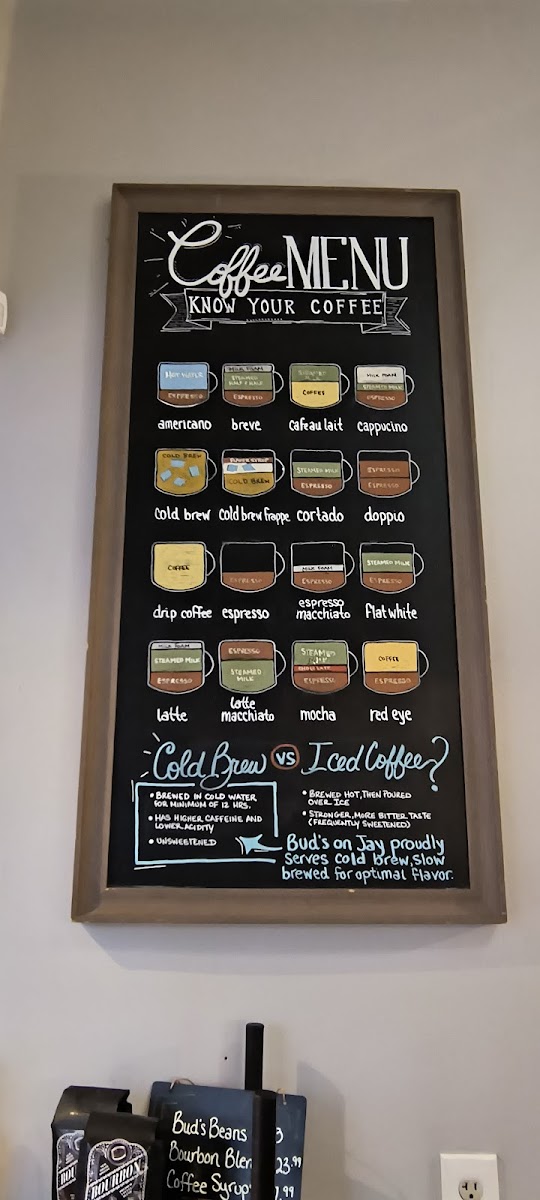 Coffee MENU
KNOW YOUR COFFEE
HOT WATER
ESPRESSO
americano
MILK FOAM
STEAMED
HALF & HALF
ESPRESSO
breve
STEAMED
COFFEE
cafe au lait
MILK FOAM
STEAMED MILK
ESPRESSO
cappucino
COLD BREW
cold brew
COLD BREW
Cold brew frappe
STEAMED MILK
ESPRESSO
cortado
ESPRESSO
ESPRESSO
doppio
COFFEE
drip coffee
ESPRESSO
espresso
MILK FOAM
ESPRESSO
espresso
macchiato
STEAMED MILK
ESPRESSO
flat white
MILK FOAM
STEAMED MILK
ESPRESSO
latte
ESPRESSO
STEAMED
MILK
latte
macchiato
STEAMED
ESPRESSO
mocha
COFFEE
ESPRESSO
red eye
Cold Brew VS Iced Coffee?
• BREWED IN COLD WATER
FOR MINIMUM OF 12 HRS.
• HAS HIGHER CAFFEINE AND
LOWER ACIDITY
• UNSWEETENED
• BREWED HOT, THEN POURED
OVER ICE
• STRONGER, MORE BITTER TASTE
(FREQUENTLY SWEETENED)
Bud's on Jay proudly
serves cold brew, slow
brewed for optimal flavor.
Bud's Beans
Bourbon Blen 23.99
Coffee Syrup .99
BOU
BOURBON